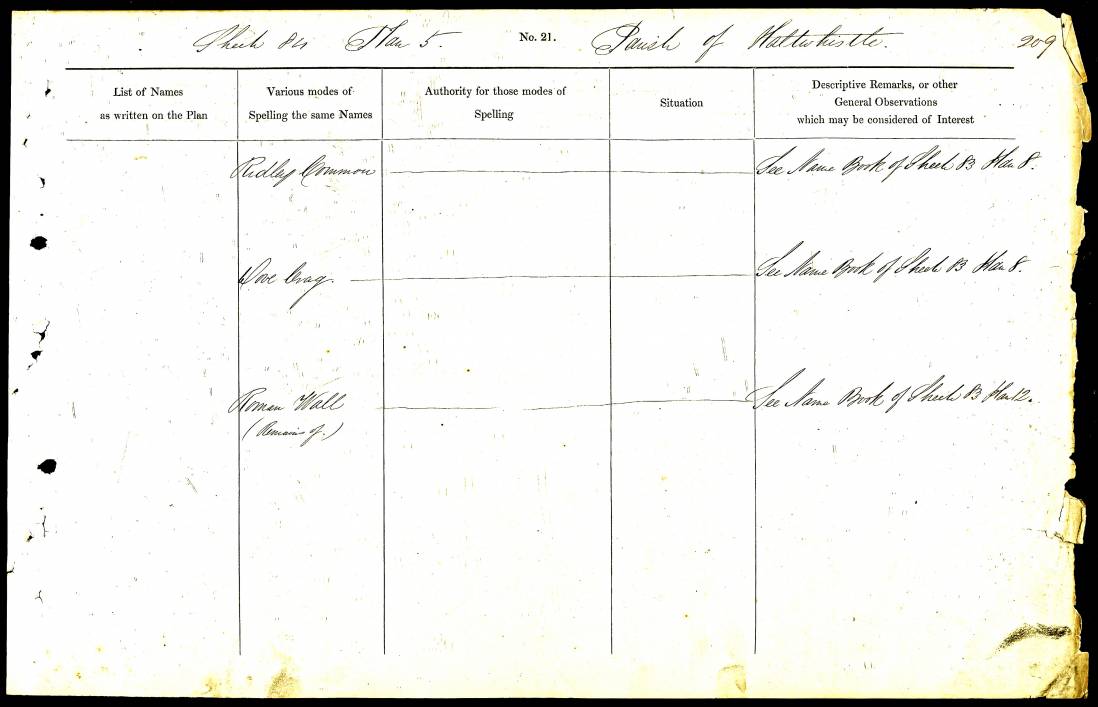 Sheet 84 Plan 5. No. 21. Parish of Haltwhistle. 209
List of Names
as written on the Plan
Various modes of
Spelling the same Names
Authority for those modes of
Spelling
Situation
Descriptive Remarks, or other
General Observations
which may be considered of Interest
Ridley Common See Name Book of Sheet 83 Plan 8.
Dove Crag. See Name Book of Sheet 83 Plan 8.
Roman Wall See Name Book of Sheet 83 Plan 12.
(Remains of.)